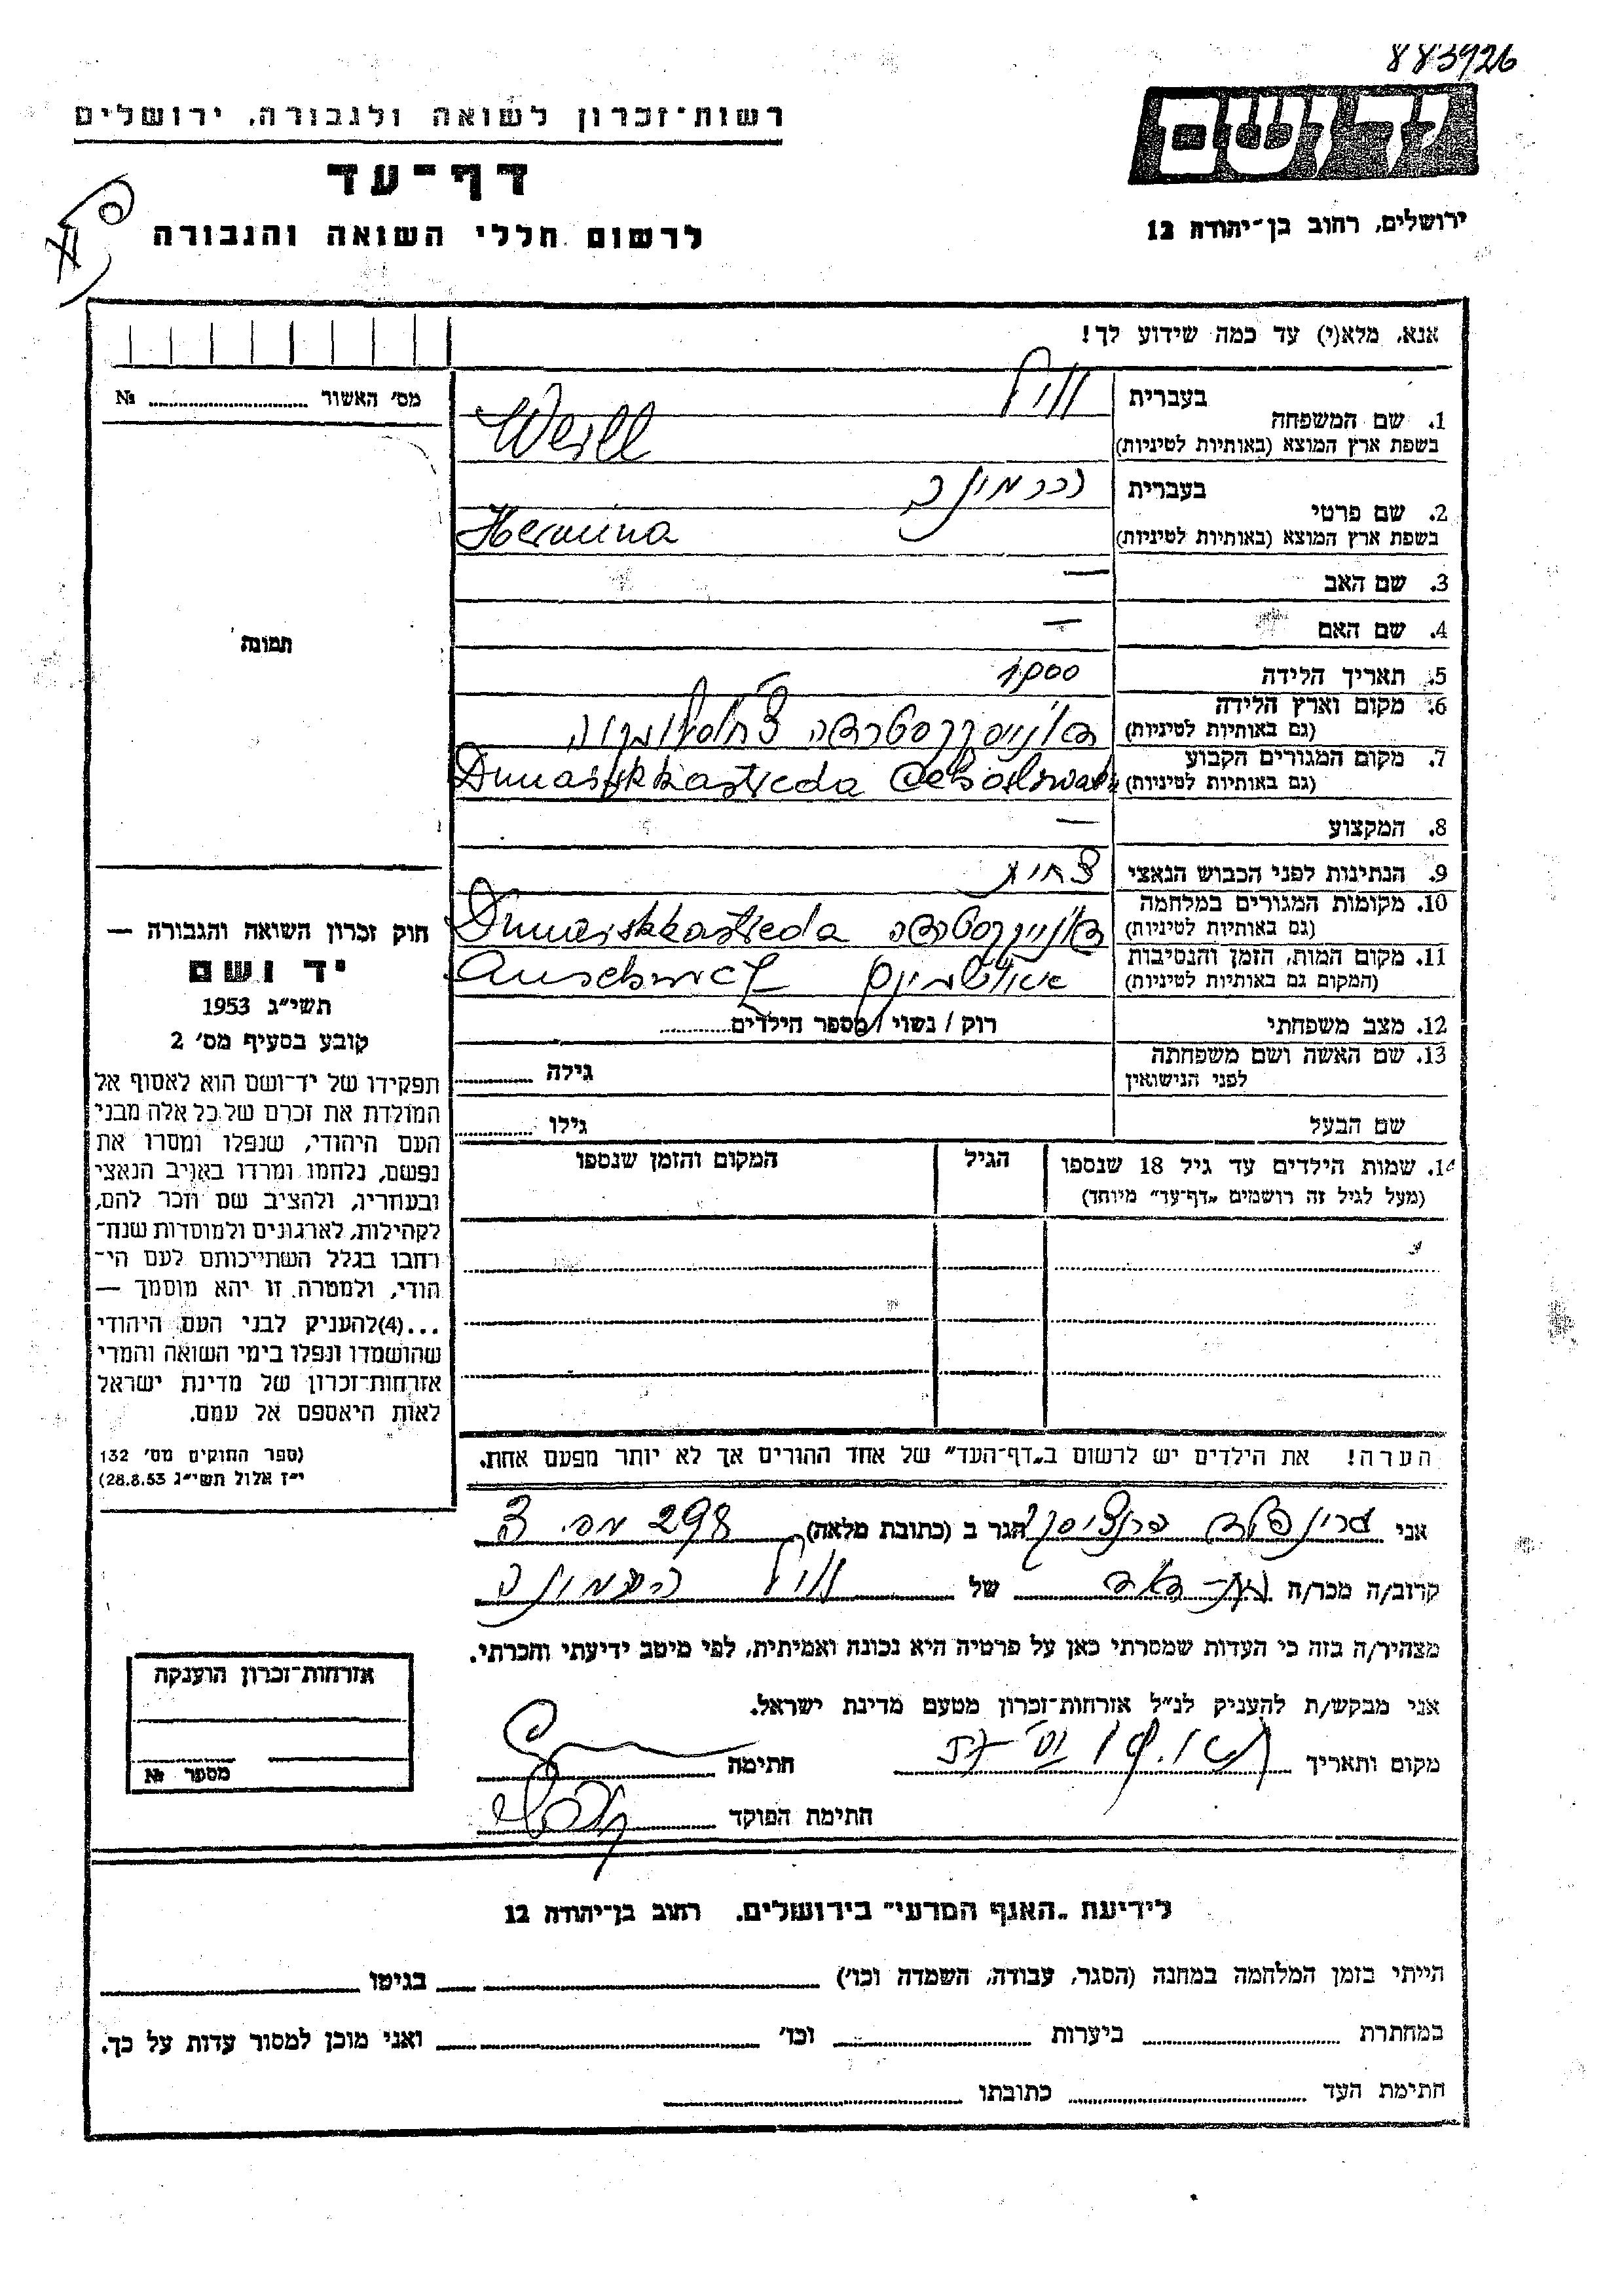 883926
יד ושם
רשות־זכרון לשואה ולגבורה, ירושלים
דף־עד
לרשום חללי השואה והגבורה
ירושלים, רחוב בן־יהודה 12
אנא, מלא(י) עד כמה שידוע לך!
מס׳ האשור №
1. שם המשפחה
בעברית וויל
בשפת ארץ המוצא (באותיות לטיניות) Weill
2. שם פרטי
בעברית הרמינה
בשפת ארץ המוצא (באותיות לטיניות) Hermina
3. שם האב —
4. שם האם —
5. תאריך הלידה 1900
6. מקום וארץ הלידה
(גם באותיות לטיניות)
7. מקום המגורים הקבוע
(גם באותיות לטיניות) Dunaiskkastreda
8. המקצוע —
9. הנתינות לפני הכבוש הנאצי צ׳כית
10. מקומות המגורים במלחמה
(גם באותיות לטיניות) Dunaiskkastreda
11. מקום המות, הזמן והנסיבות
(המקום גם באותיות לטיניות)
12. מצב משפחתי רוק / נשוי / מספר הילדים
13. שם האשה ושם משפחתה
לפני הנישואין גילה
שם הבעל גילו
14. שמות הילדים עד גיל 18 שנספו הגיל המקום והזמן שנספו
(מעל לגיל זה רושמים „דף־עד” מיוחד)
תמונה
חוק זכרון השואה והגבורה —
יד ושם
תשי״ג 1953
קובע בסעיף מס׳ 2
תפקידו של יד־ושם הוא לאסוף אל
המולדת את זכרם של כל אלה מבני
העם היהודי, שנפלו ומסרו את
נפשם, נלחמו ומרדו באויב הנאצי
ובעוזריו, ולהציב שם וזכר להם,
לקהילות, לארגונים ולמוסדות שנח־
רחבו בגלל השתייכותם לעם הי־
הודי, ולמטרה זו יהא מוסמך —
...(4)להעניק לבני העם היהודי
שהושמדו ונפלו בימי השואה והמרי
אזרחות־זכרון של מדינת ישראל
לאות היאספם אל עמם.
(ספר החוקים מס׳ 132
י״ז אלול תשי״ג 28.8.53)
הערה! את הילדים יש לרשום ב„דף־העד” של אחד ההורים אך לא יותר מפעם אחת.
אני גרינפלד הגר ב (כתובת מלאה)
קרוב/ה מכר/ה בת־דודה של וויל הרמינה
מצהיר/ה בזה כי העדות שמסרתי כאן על פרטיה היא נכונה ואמיתית, לפי מיטב ידיעתי והכרתי.
אני מבקש/ת להעניק לנ״ל אזרחות־זכרון מטעם מדינת ישראל.
מקום ותאריך חתימה
חתימת הפוקד
אזרחות־זכרון הוענקה
מספר №
לידיעת „האגף המדעי” בירושלים, רחוב בן־יהודה 12
הייתי בזמן המלחמה במחנה (הסגר, עבודה, השמדה וכו׳) בגיטו
במחתרת ביערות וכו׳ ואני מוכן למסור עדות על כך.
חתימת העד כתובתו